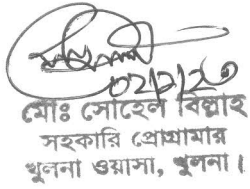 ০২/১২/২৩
মোঃ সোহেল বিল্লাহ
সহকারি প্রোগ্রামার
খুলনা ওয়াসা, খুলনা।